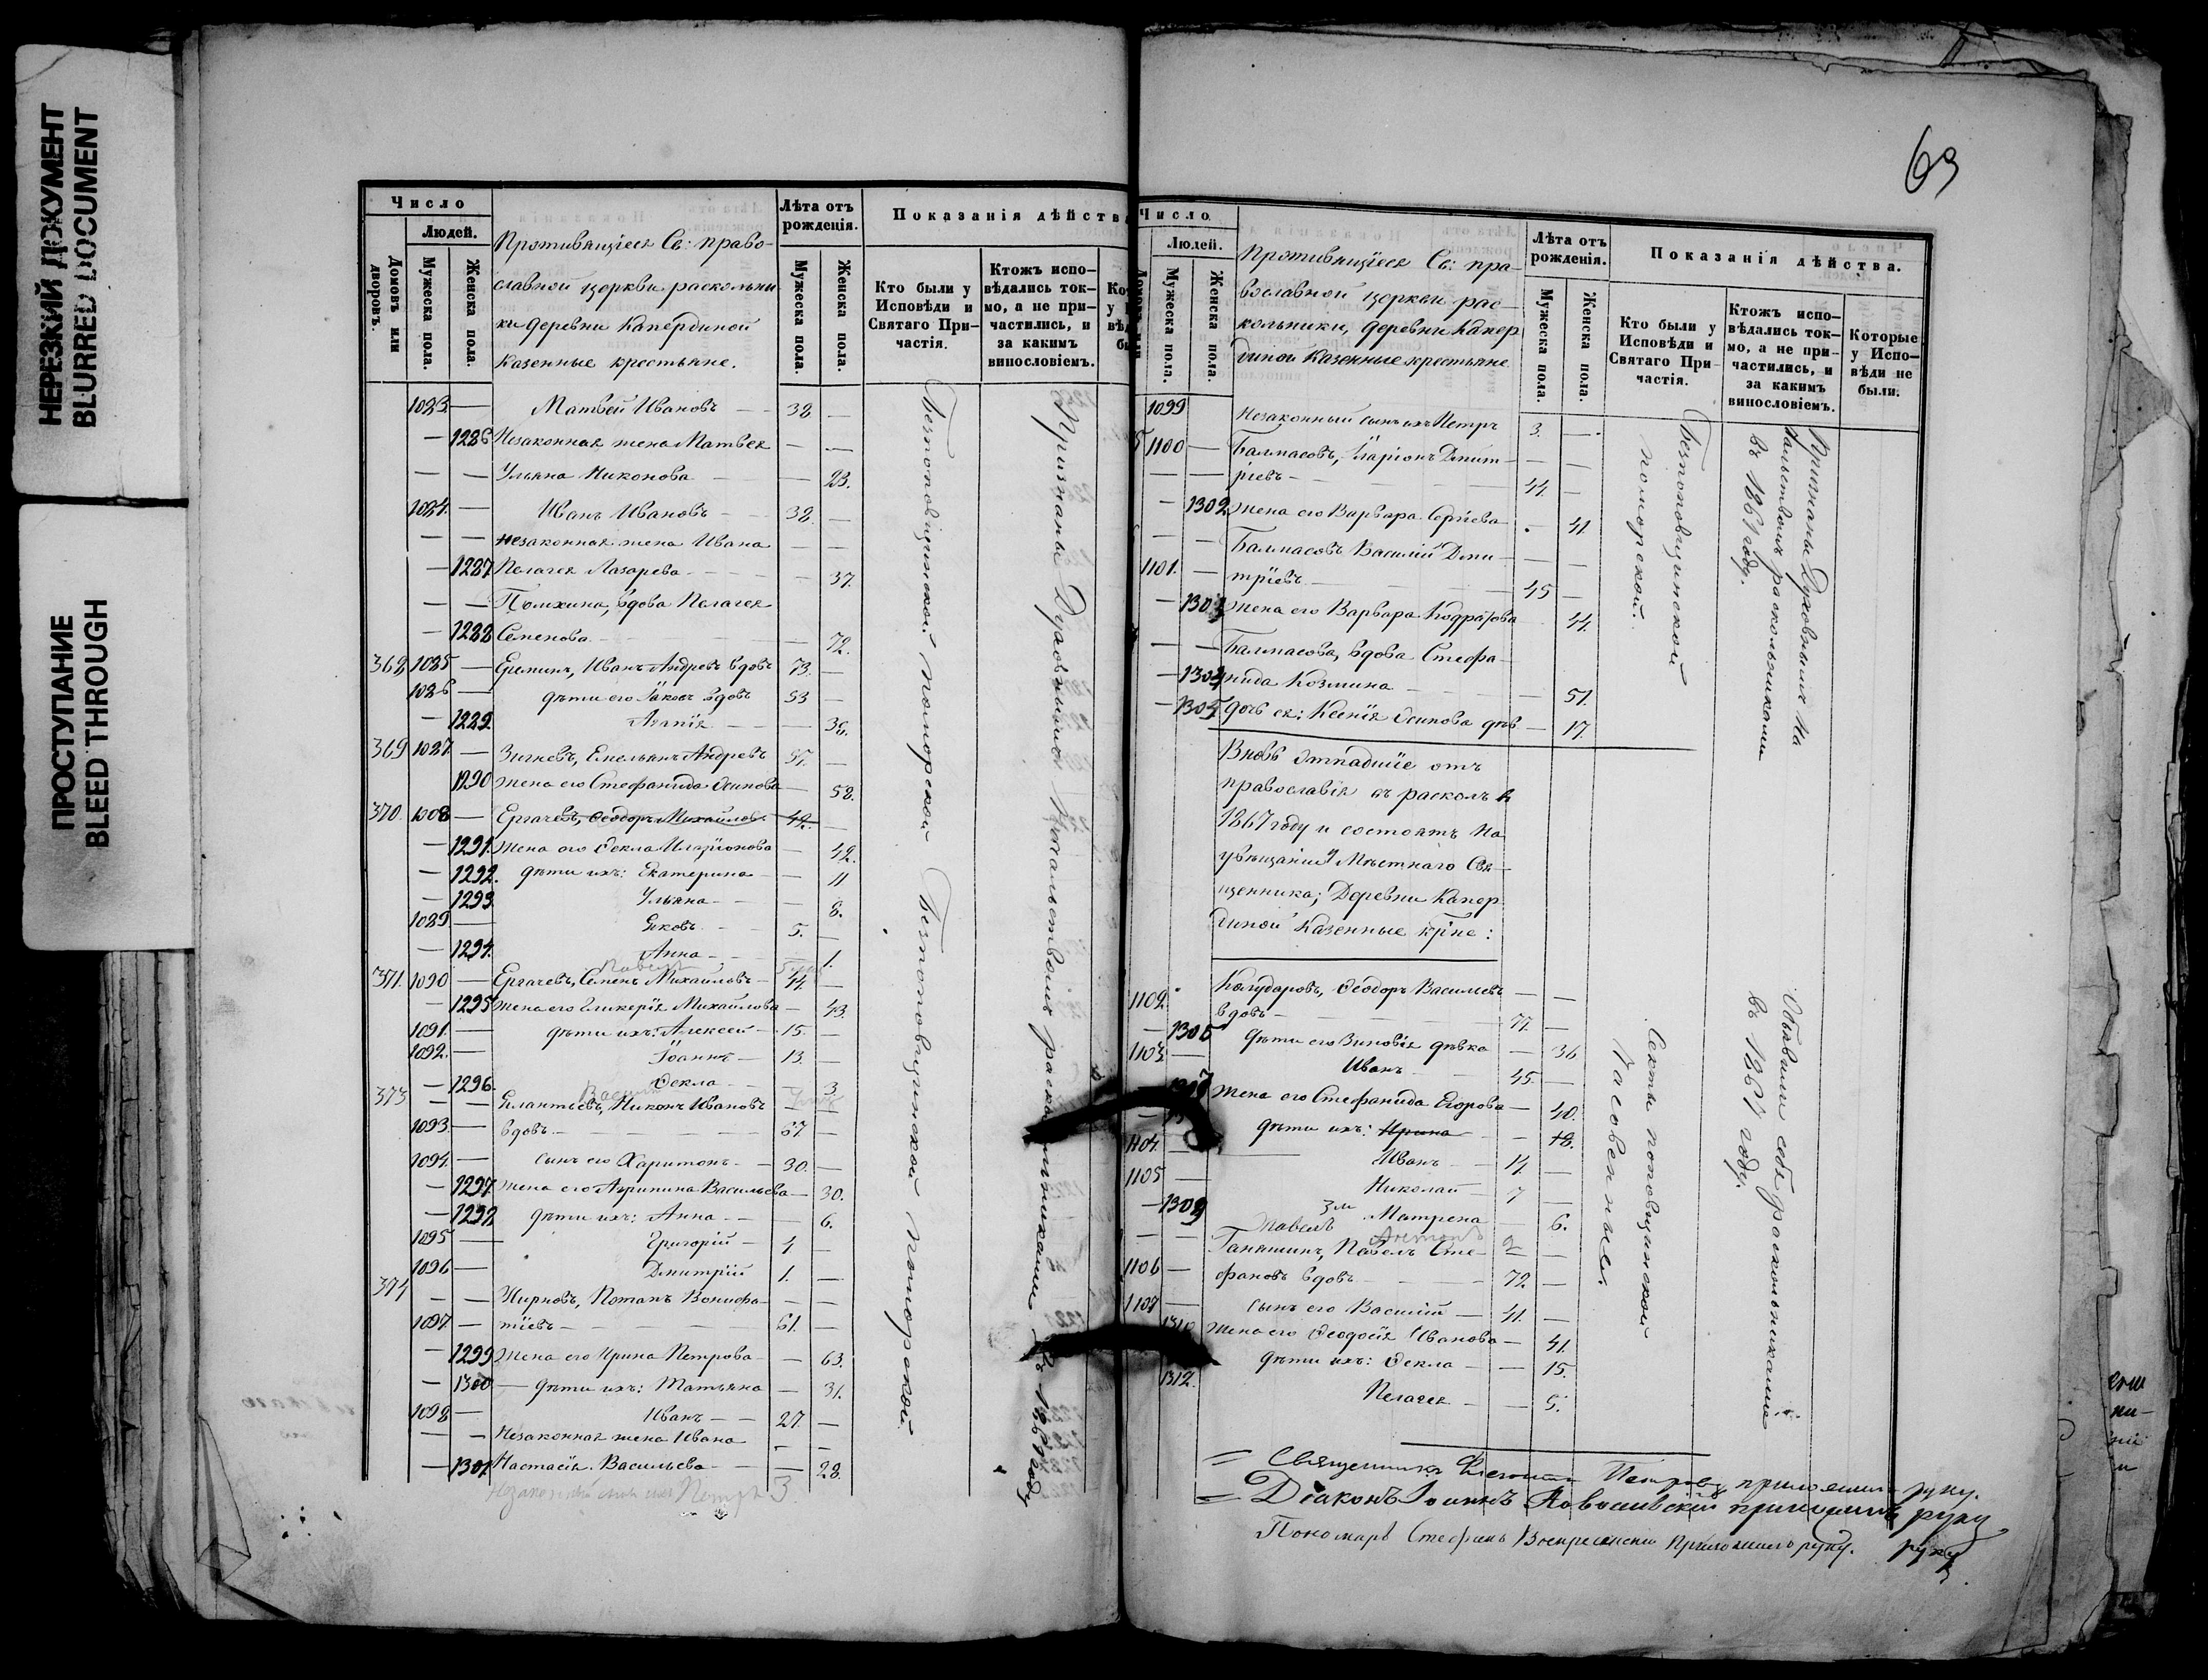 НЕРЕЗКИЙ ДОКУМЕНТ
BLURRED DOCUMENT
ПРОСТУПАНИЕ
BLEED THROUGH
Число
Людей.
Домовъ или дворовъ.
Мужеска пола.
Женска пола.
Противящіеся Св: право-
славной церкви раскольни
ки деревни
казенные крестьяне.
Лѣта отъ рожденія.
Мужеска пола.
Женска пола.
Показанія дѣйства
Кто были у Исповѣди и Святаго При-частія.
Ктожъ испо-вѣдались ток-мо, а не при-частились, и за какимъ винословіемъ.
1083 — Матвей Ивановъ — 38 —
— 1286 Незаконная жена Матвея — —
— — Ульяна Никонова — 23.
1084. — Иванъ Ивановъ — 38. —
— — незаконная жена Ивана — —
— 1287 Пелагея Лазарева — 37.
— — вдова Пелагея
— 1288 Семенова — 72.
368 1085 — Еремин, Иванъ Андревъ вдовъ 73. —
1086 — дѣти его Іаковъ вдовъ 53 —
— 1289 — 36.
369 1087 — Емельянъ Андревъ 57. —
1290 жена его Стефанида Осипова — 58.
370. 1088 — Ергачевъ, Ѳеодоръ Михайловъ 42. —
— 1291. жена его Ѳекла — 42.
— 1292. дѣти ихъ: Екатерина — 11
— 1293. Ульяна — 8.
1089 — Яковъ 5. —
— 1294. Анна — 1.
371. 1090 — Ергачевъ, Семенъ Михайловъ 44 —
— 1295 жена его Гликерія Михайлова — 43.
1091. — дѣти ихъ: Алексей 15. —
1092. — Іоаннъ 13. —
— 1296. Ѳекла — 3.
373 — — Никонъ Ивановъ
1093. — вдовъ 67. —
1094. — сынъ его Харитонъ 30. —
— 1297 жена его Агрипина Васильева — 30.
— 1298 дѣти ихъ: Анна — 6.
1095 — Григорій 4 —
1096 — Дмитрій 1. —
374 — — Потапъ Вонифа- — —
1097. — тіевъ 61. —
— 1299 жена его Ирина Петрова — 63.
— 1300 дѣти ихъ: Татьяна — 31.
1098 — Иванъ 27. —
— — Незаконная жена Ивана — —
— 1301 Настасія Васильева — 28.
Незаконный сынъ ихъ Петръ 3
Безпоповщинской поморской
Безпоповщинской поморской.
Признаны Духовнымъ Начальствомъ раскольниками въ году
63
Число
Людей.
Мужеска пола.
Женска пола.
Противящіеся Св: пра-
вославной церкви рас
кольники, деревни Капер
диной казенные крестьяне
Лѣта отъ рожденія.
Мужеска пола.
Женска пола.
Показанія дѣйства.
Кто были у Исповѣди и Святаго При-частія.
Ктожъ испо-вѣдались ток-мо, а не при-частились, и за какимъ винословіемъ.
Которые у Испо-вѣди не были.
1099 незаконный сынъ ихъ Петръ 3. —
1100 — Балмасовъ, Иларіонъ Дмит- — —
ріевъ 44. —
— 1302 жена его Варвара Сергіева 41.
— — Балмасовъ Василій Дми- — —
1101. — тріевъ 45 —
— 1303 жена его Варвара 44.
— — Балмасова, вдова Стефа-
— 1304 нида Козмина — 51.
— 1305 дочь ея: Ксенія Осипова дѣв — 17.
Вновь отпадшіе отъ
православія въ расколъ въ
1867 году и состоятъ на
увѣщаніи у Мѣстнаго Свя-
щенника; Деревни Капер
диной казенные кр̃не:
1102. Ѳеодоръ Васильевъ — —
вдовъ 77. —
— 1306 дѣти его Зиновія дѣвка — 36
1103. — Иванъ 45. —
1307 жена его Стефанида Егорова — 40.
дѣти ихъ: Ирина — 18.
1104. — Иванъ 14. —
1105 — Николай 7 —
— 1309 Матрена — 6.
— — Павелъ Сте- —
1106 — фановъ вдовъ 72 —
1107 — сынъ его Василій 41. —
1310 жена его Ѳеодосія Иванова — 41.
дѣти ихъ: Ѳекла — 15.
1312. Пелагея — 5.
Безпоповщинской поморской.
Признаны Духовнымъ На
чальствомъ раскольниками
въ году.
Секты поповщинской
Часовенные.
Объявили себя раскольниками
въ 1867 году.
Священникъ Петровъ приложилъ руку.
Діаконъ Іоаннъ приложилъ руку
Пономарь Стефанъ Воскресенскій приложилъ руку.
руку